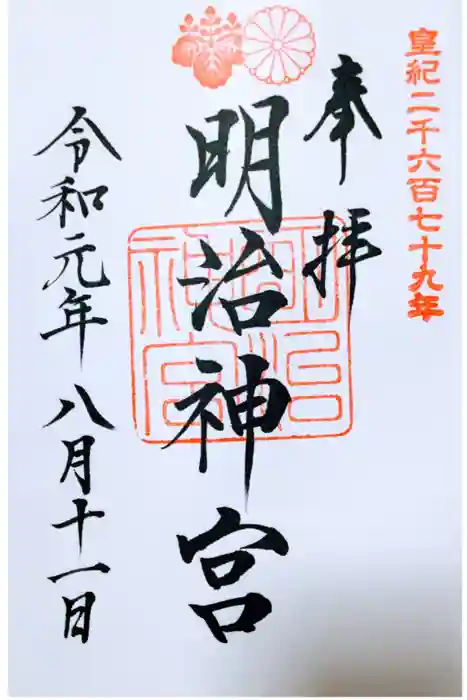 皇紀二千六百七十九年
奉拝
明治神宮
明治神宮
令和元年八月十一日